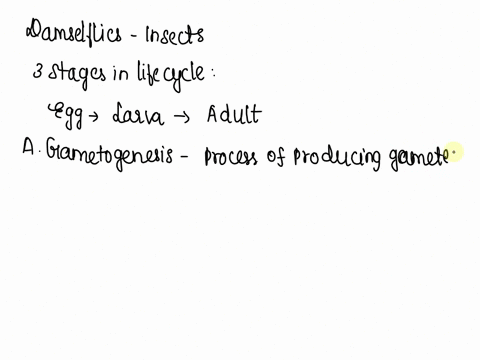 Damselflies - Insects
3 stages in life cycle:
Egg → Larva → Adult
A. Gametogenesis - Process of producing gamete